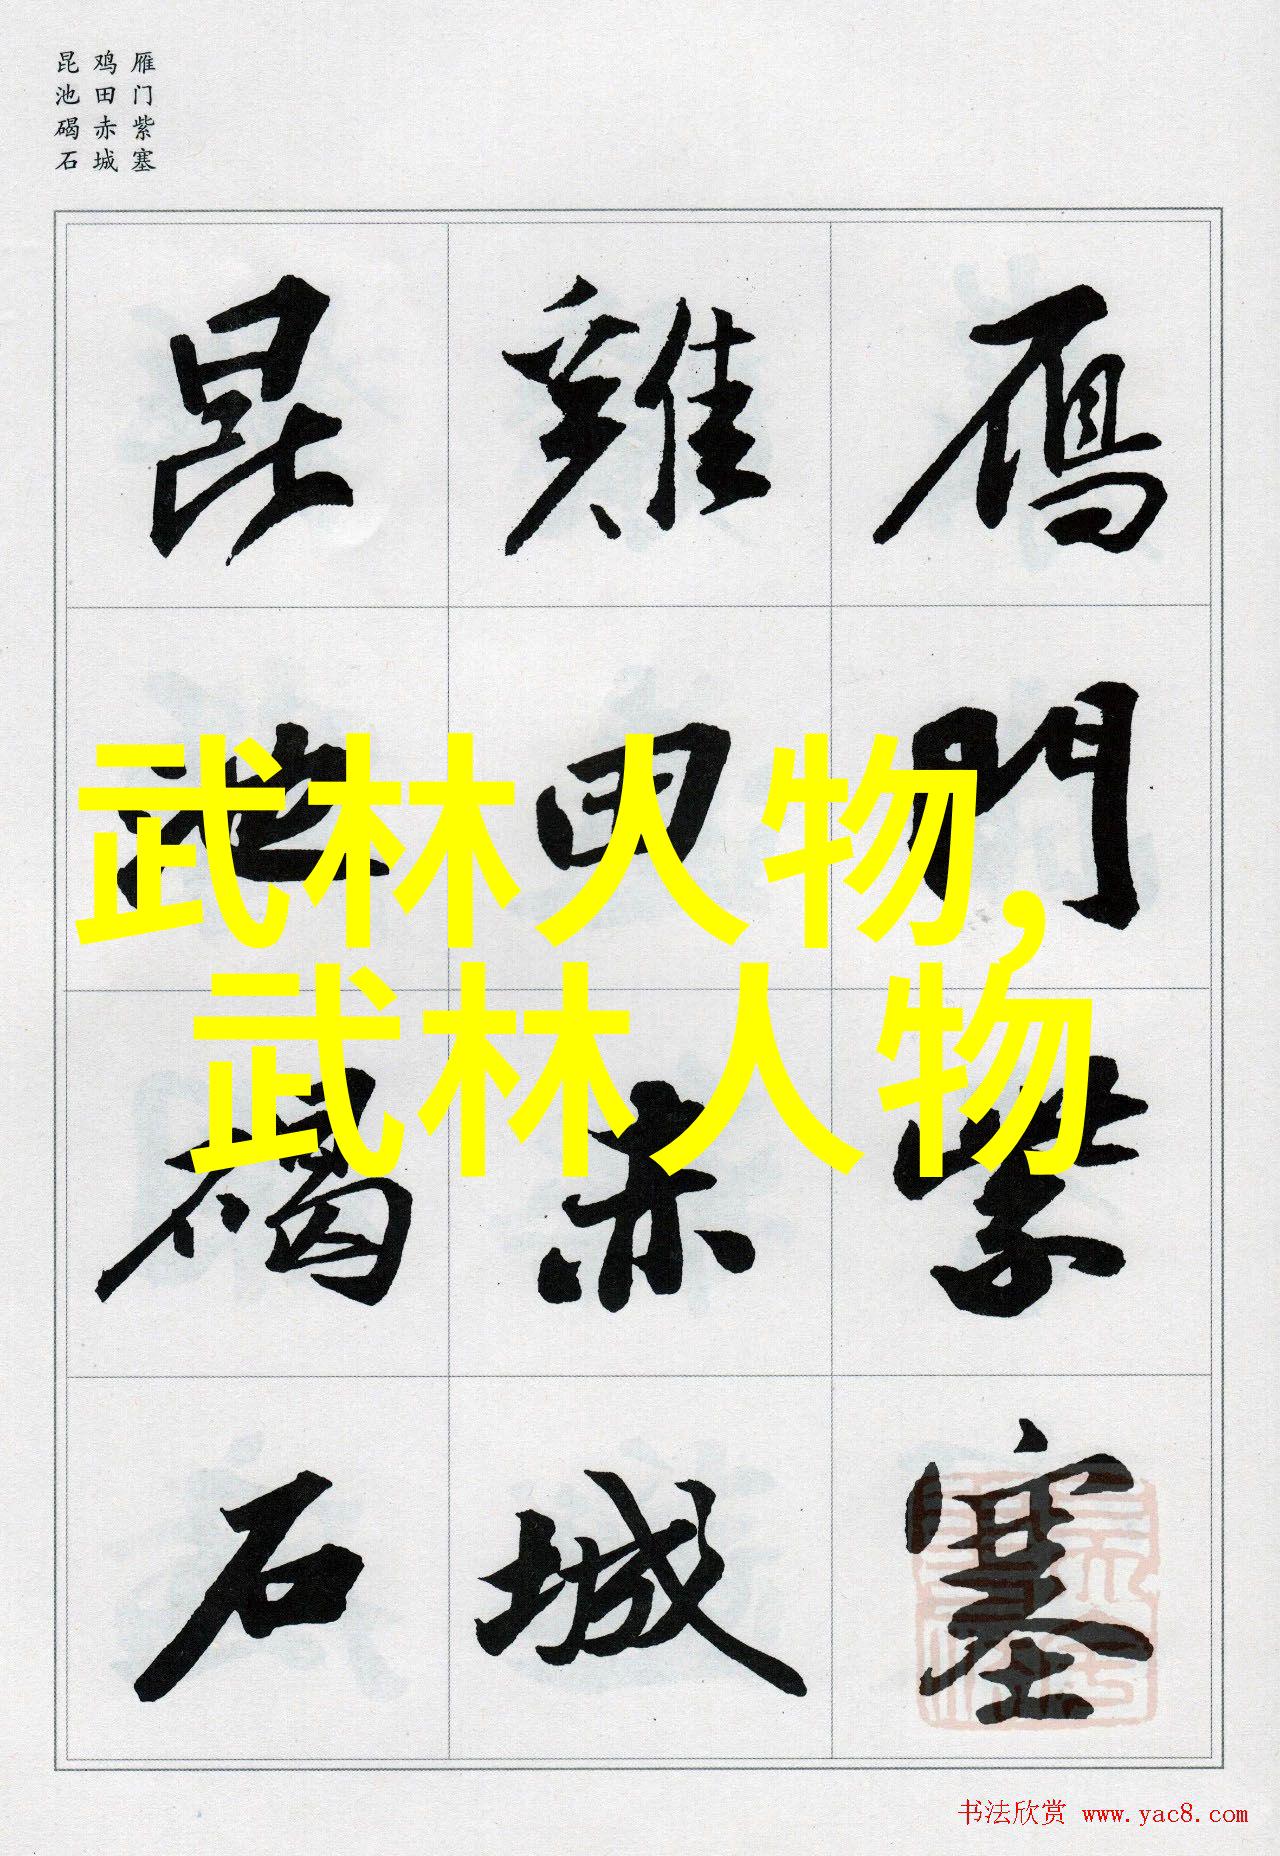 雁门紫塞
鸡田赤城
昆池碣石
鴈門紫塞
雞田赤城
昆池碣石
武林人物,
武林人物
书法欣赏 www.yac8.com